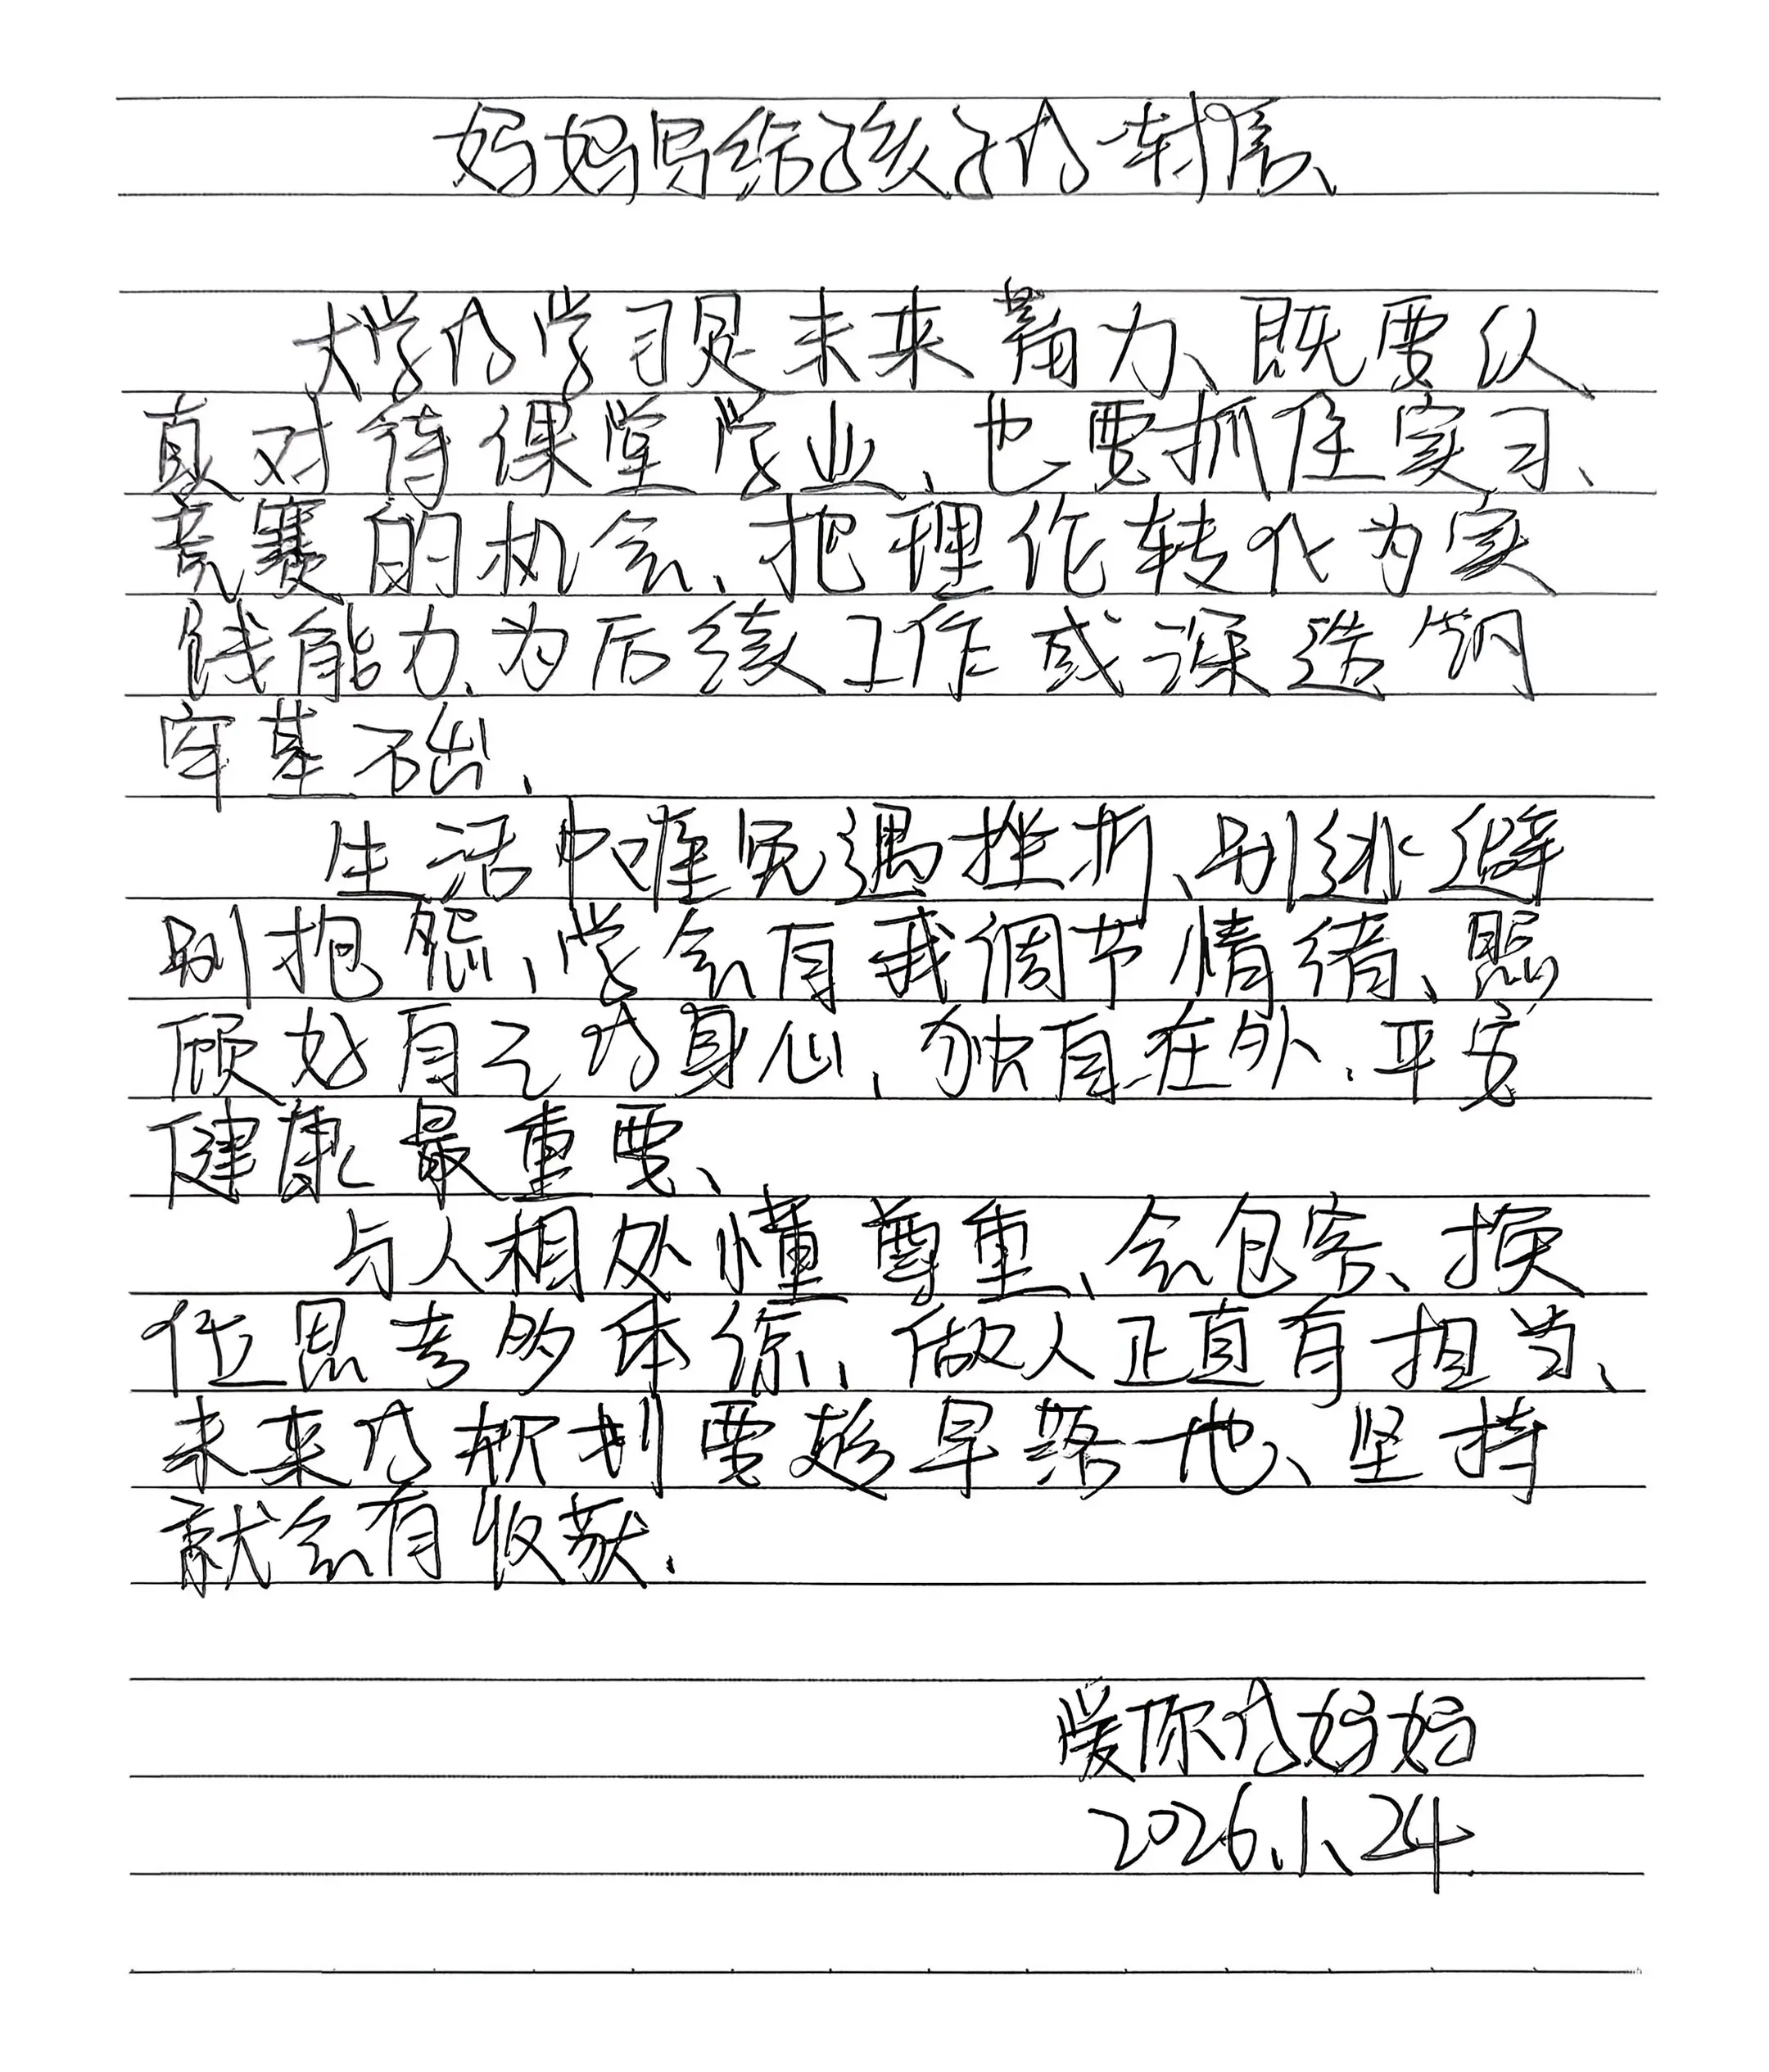 妈妈写给孩子的一封信、
大学的学习是未来蓄力、既要认
真对待课堂学业、也要抓住实习、
竞赛的机会、把理论转化为实
践能力、为后续工作或深造筑
牢基础、
生活中难免遇挫折、别逃避
别抱怨、学会自我调节情绪、照
顾好自己的身心、独自在外、平安
健康最重要、
与人相处懂尊重、会包容、换
位思考多体谅、做人正直有担当、
未来的规划要趁早落地、坚持
就会有收获.
爱你的妈妈
2026.1、24.